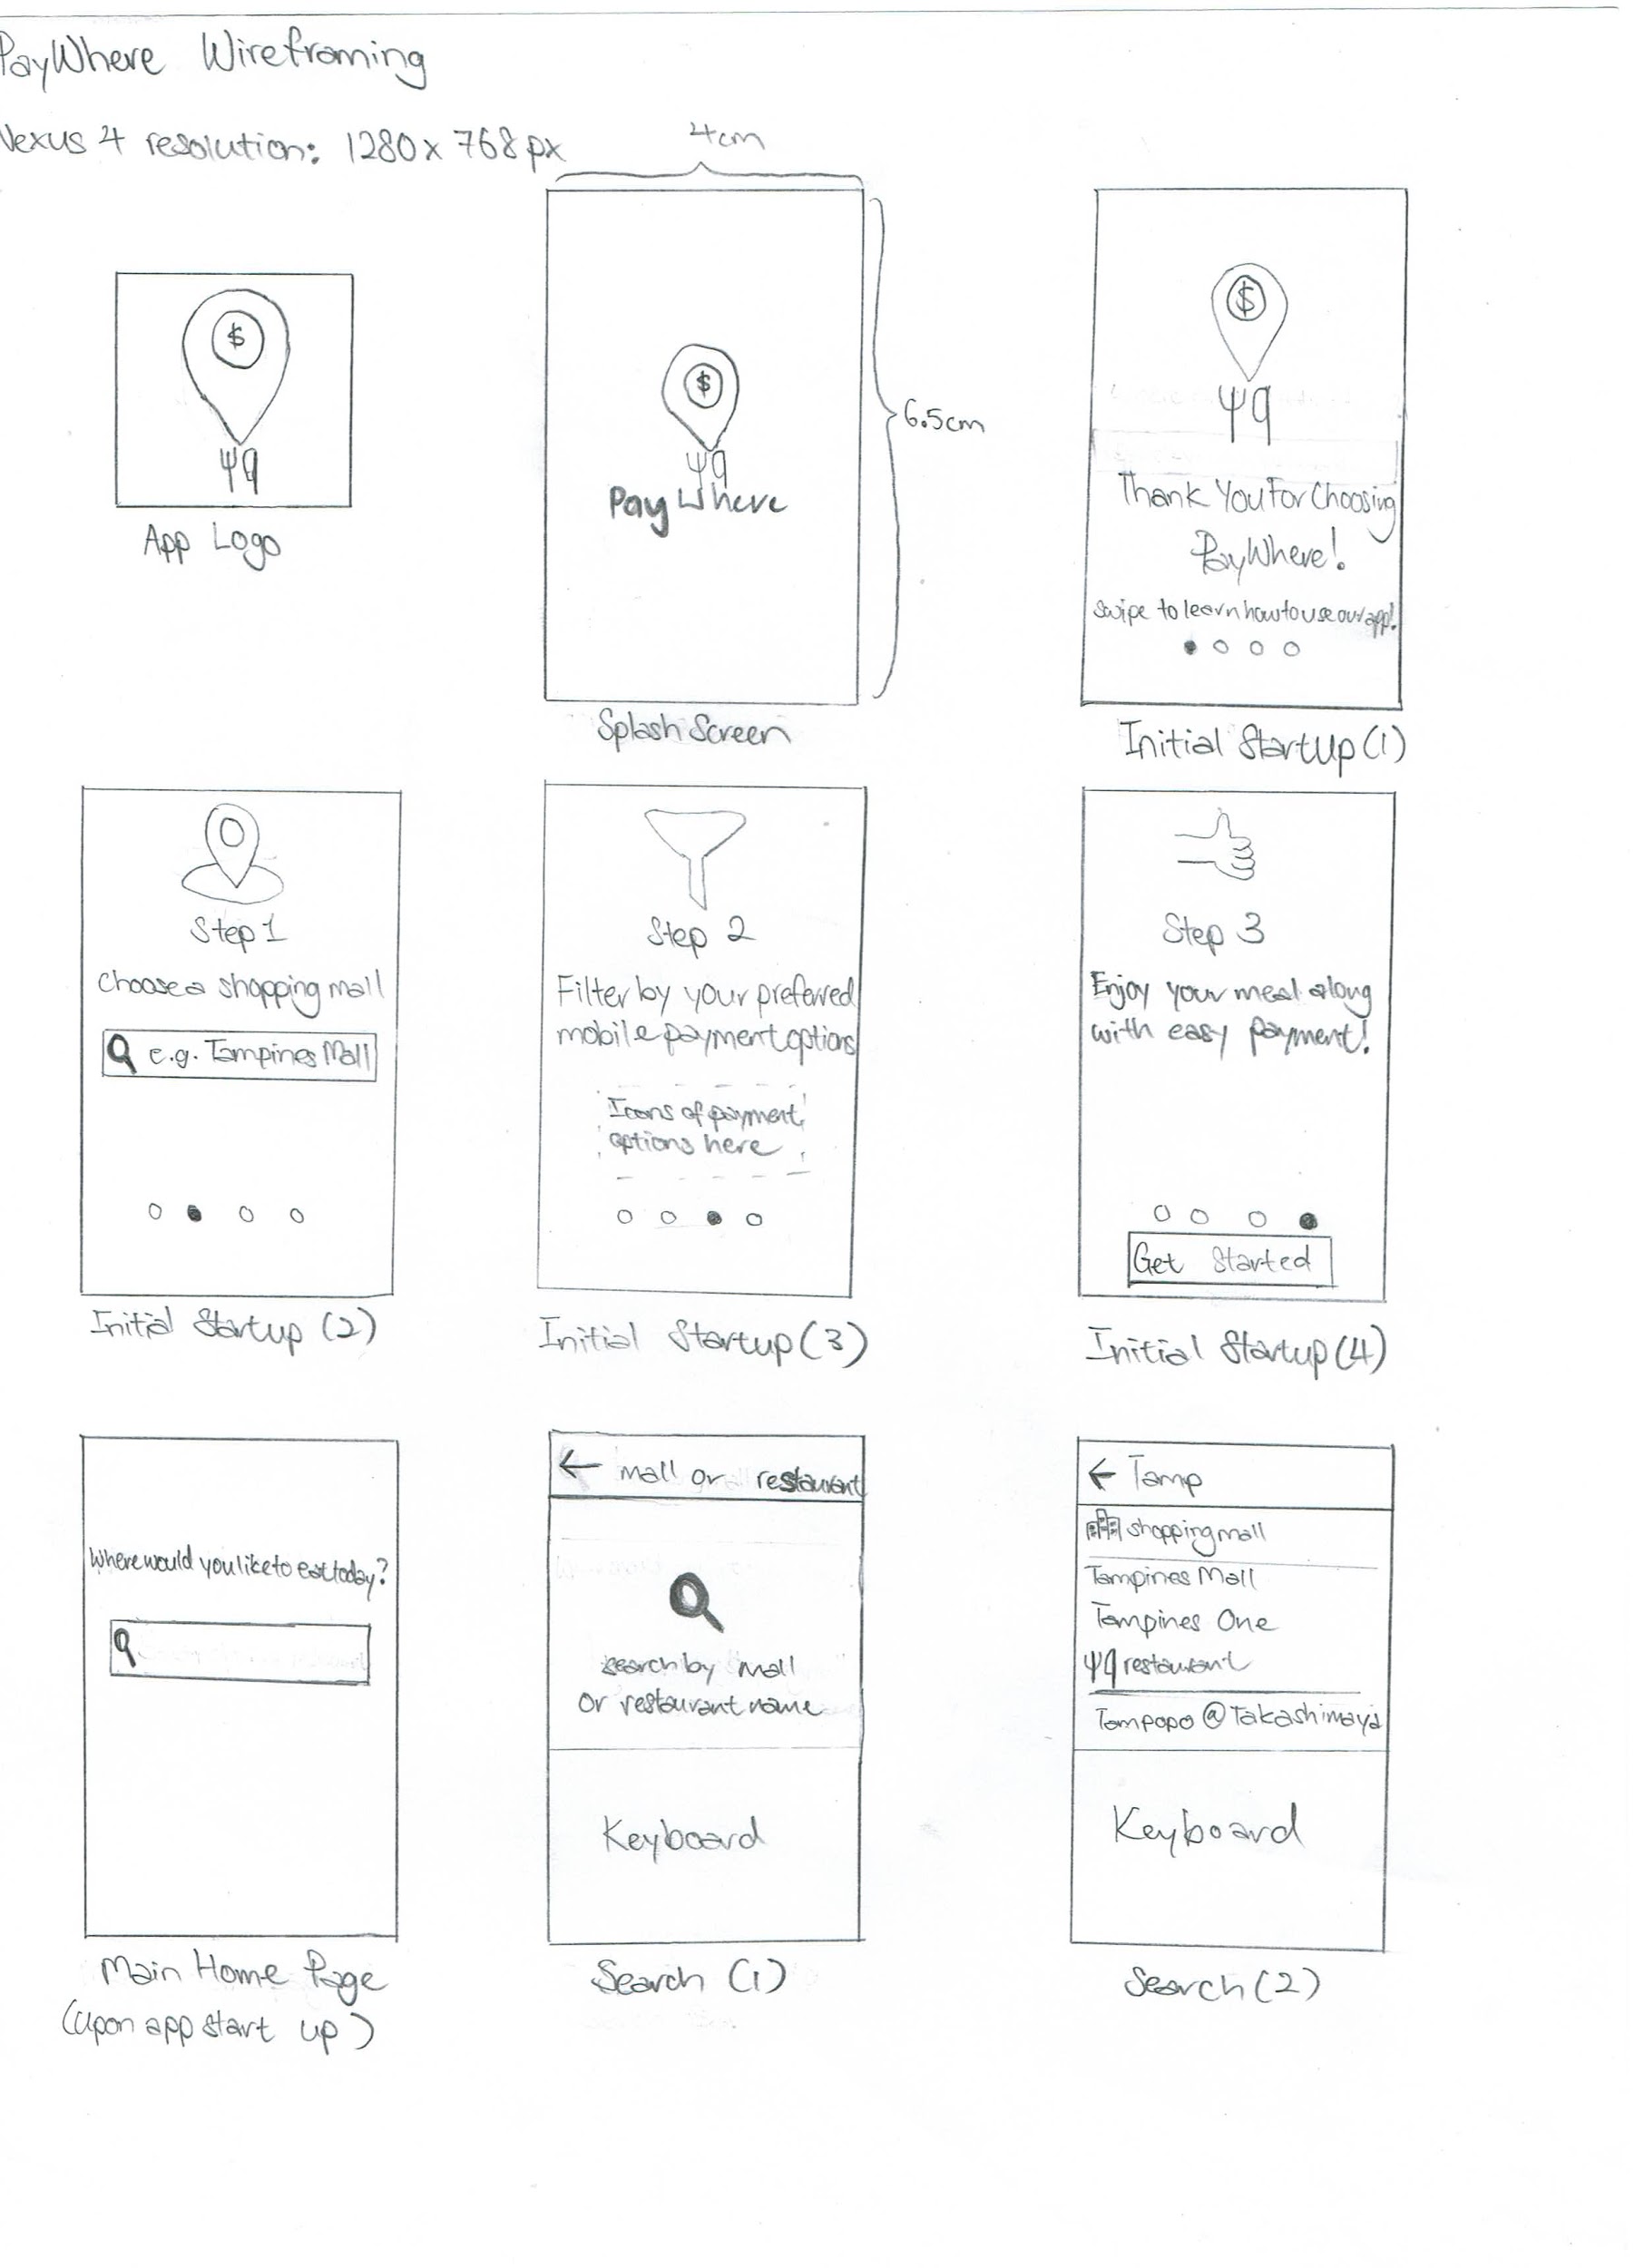 PayWhere Wireframing
Nexus 4 resolution: 1280 x 768 px
4cm
$
App Logo
$
PayWhere
6.5cm
Splash Screen
$
Thank You For Choosing
PayWhere!
Swipe to learn how to use our app!
Initial Startup (1)
Step 1
Choose a shopping mall
e.g. Tampines Mall
Initial Startup (2)
Step 2
Filter by your preferred
mobile payment options
Icons of payment
options here
Initial Startup (3)
Step 3
Enjoy your meal along
with easy payment!
Get Started
Initial Startup (4)
Where would you like to eat today?
Main Home Page
(Upon app start up)
← mall or restaurant
search by mall
or restaurant name
Keyboard
Search (1)
← Tamp
shopping mall
Tampines Mall
Tampines One
restaurant
Tampopo @ Takashimaya
Keyboard
Search (2)